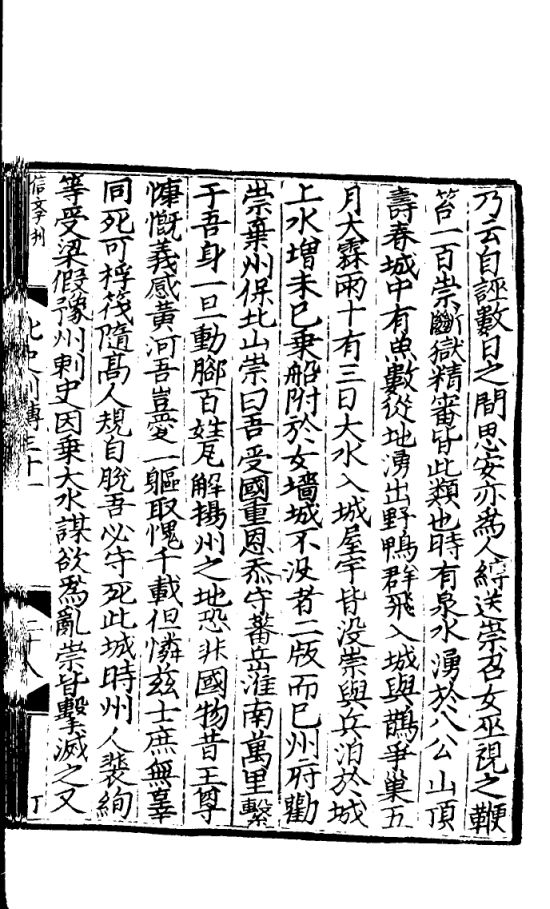 乃云自誣數日之間思安亦爲人縛送崇召女巫視之鞭
笞一百崇斷獄精審皆此類也時有泉水湧於八公山頂
壽春城中有魚數從地湧出野鴨群飛入城與鵲爭巢五
月大霖雨十有三日大水入城屋宇皆没崇與兵泊於城
上水增未已乗船附於女墻城不没者二版而已州府勸
崇棄州保北山崇曰吾受國重恩忝守蕃岳淮南萬里繫
于吾身一旦動腳百姓瓦解揚州之地恐非國物昔王尊
慷慨義感黄河吾豈愛一軀取愧千載但憐兹士庶無辜
同死可桴筏隨髙人規自脫吾必守死此城時州人裴絢
等受梁假豫州刺史因乗大水謀欲爲亂崇皆擊滅之又
北史列傳三十一
二十八